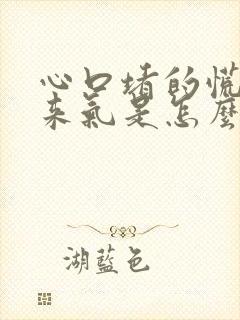 心口堵的慌
来气是怎麼
湖藍色